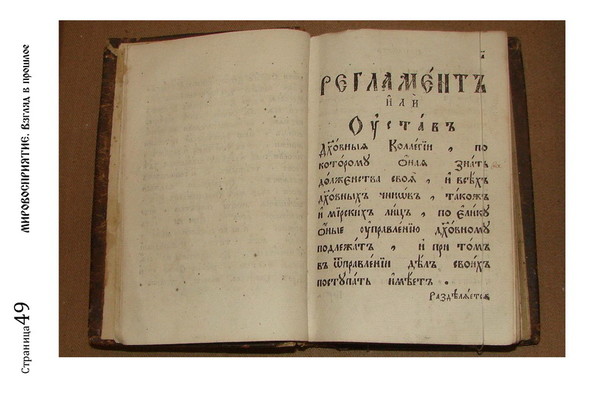 МИРОВОСПРИЯТИЕ. Взгляд в прошлое
Страница 49
РЕГЛАМЕ́НТЪ
И҆ЛЍ
Оу҆ста́въ
Дх҃о́вныѧ Колле́гїи , по
кото́рому ѻ҆́наѧ зна́ть
до́лженства своѧ̀ , и҆ всѣ́хъ
дх҃о́вныхъ чинѡ́въ , тако́жъ
и҆ мїрски́хъ ли́цъ , по є҆ли́кꙋ
ѻ҆́ные оу҆правле́нїю дх҃о́вному
подлежа́тъ , и҆ при то́мъ
въ ѿправле́нїи дѣ́лъ свои́хъ
поступа́ть и҆мѣ́етъ .
Раздѣлѧ́етсѧ